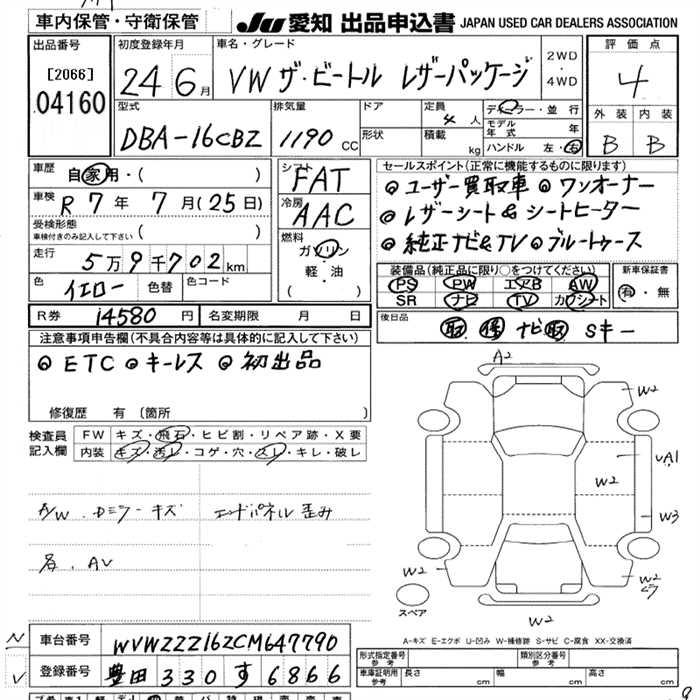 車内保管・守衛保管 JU 愛知 出品申込書 JAPAN USED CAR DEALERS ASSOCIATION
出品番号 初度登録年月 車名・グレード 評価点
[2066] 24年6月 VW ザ・ビートル レザーパッケージ 2WD・4WD 4
04160 型式 排気量 ドア 定員 4人 ディーラー・並行 外装 内装
DBA-16CBZ 1190 CC 形状 積載 kg モデル年式 年 B B
ハンドル 左・右
車歴 自家用・( ) シフト FAT セールスポイント(正常に機能するものに限ります)
車検 R7年7月(25日) 冷房 AAC ◎ユーザー買取車 ◎ワンオーナー
受検形態 車検付きのみ記入して下さい ( ) ◎レザーシート&シートヒーター
走行 5万9千702km 燃料 ガソリン・軽・油 ( ) ◎純正ナビ&TV ◎ブルートゥース
色 イエロー 色替 色コード 装備品(純正品に限り○をつけてください) 新車保証書
PS PW エアB AW 有・無
SR ナビ TV カワシート
R券 14580円 名変期限 月 日 後日品 取 保 ナビ取 Sキー
注意事項申告欄(不具合内容等は具体的に記入して下さい)
◎ETC ◎キーレス ◎初出品
修復歴 有(箇所 )
検査員記入欄 FW キズ・飛石・ヒビ割・リペア跡・X要
内装 キズ・汚レ・コゲ・穴・スレ・キレ・破レ
A/W、Dミラーキズ エンドパネル歪み
各、AV
A2
W2
A1
W2
W3
W2
W2
W2
スペア
A-キズ E-エクボ U-凹み W-補修跡 S-サビ C-腐食 XX-交換済
車台番号 WVWZZZ16ZCM647790 形式指定番号 参考 類別区分番号 参考
登録番号 豊田 330 す 6866 車庫証明用 参考 長さ cm 幅 cm 高さ cm